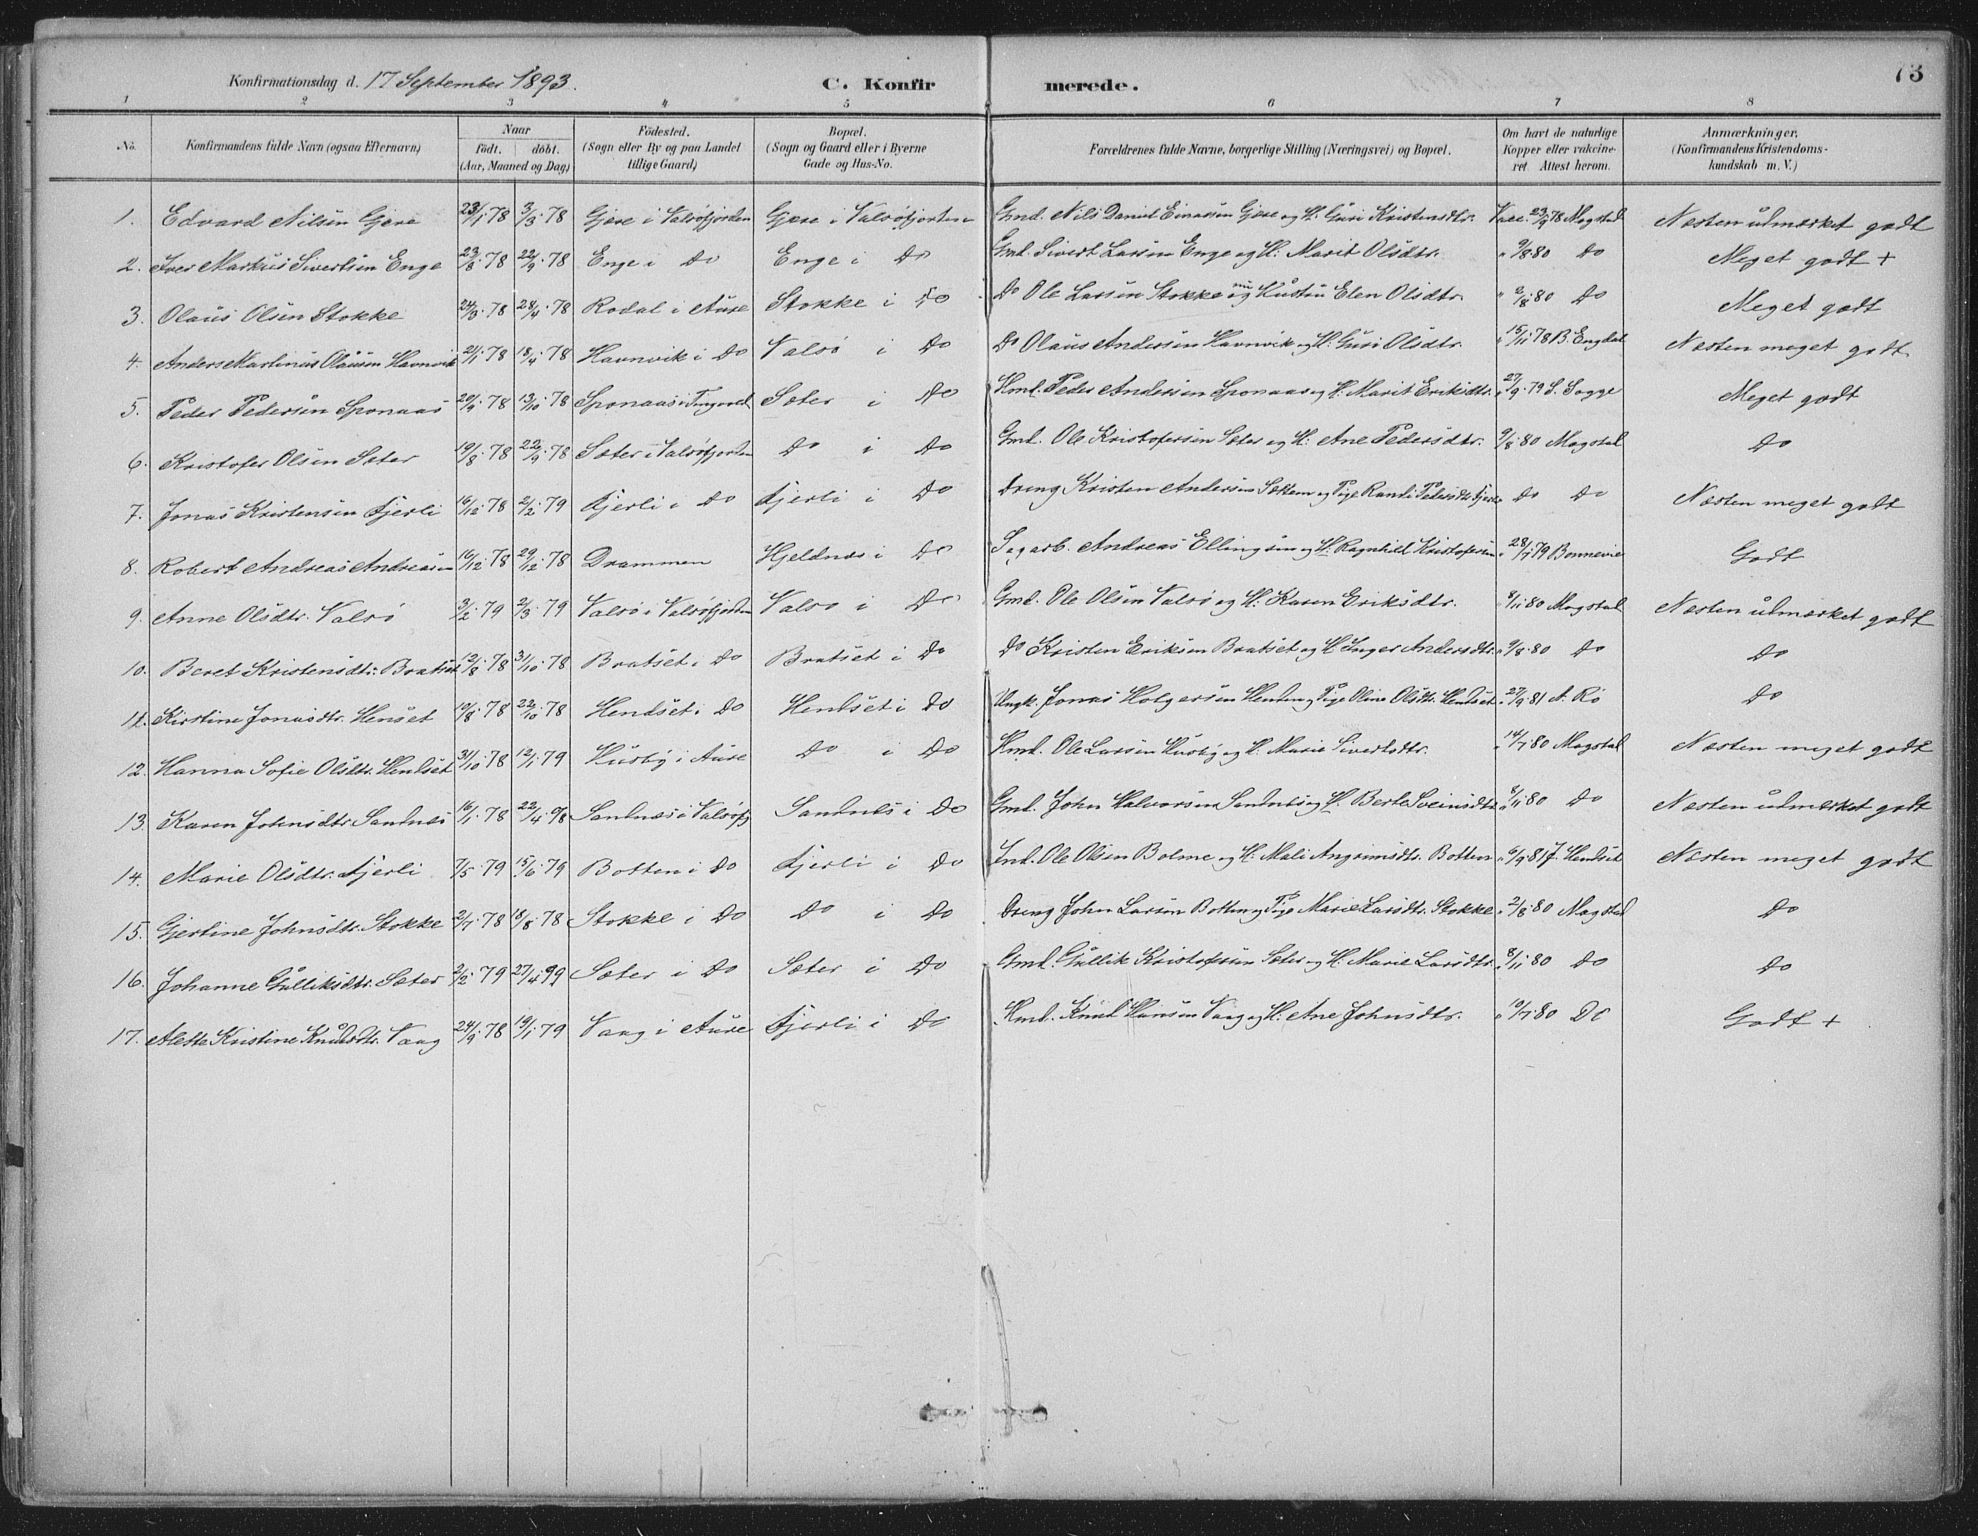 73
Konfirmationsdag d. 17 September 1893. C. Konfirmerede.
1 2 3 4 5 6 7 8
No. Konfirmandens fulde Navn (ogsaa Efternavn) Naar födt. döbt. (Aar, Maaned og Dag) Födested. (Sogn eller By og paa Landet tillige Gaard) Bopæl. (Sogn og Gaard eller i Byerne Gade og Hus-No. Forældrenes fulde Navne, borgerlige Stilling (Næringsvei) og Bopæl. Om havt de naturlige Kopper eller vakcineret Attest herom. Anmærkninger, (Konfirmandens Kristendomskundskab m. V.)
1. Edvard Nilsen Gjere 23/1 78 3/3 78 Gjere i Valsøfjorden Gjere i Valsøfjorden Gmd. Nils Daniel Einarsen Gjere og H. Guri Kristensdtr. Vacc. 23/9 78 Magstad Næsten udmærket godt
2. Iver Markus Sivertsen Enge 23/8 78 22/9 78 Enge i Do Enge i Do Gmd. Sivert Larsen Enge og H. Marit Olsdtr. " 9/8 80 Do Meget godt +
3. Olaus Olsen Stokke 24/3 78 28/4 78 Rodal i Aure Stokke i Do Do Ole Larsen Stokke og Hustru Elen Olsdtr. " 2/8 80 Do Meget godt
4. Anders Martinus Olausen Havnvik 21/1 78 18/4 78 Havnvik i Do Valsø i Do Do Olaus Andersen Havnvik og H. Guri Olsdtr. " 15/11 78 B. Engdal Næsten meget godt
5. Peder Pedersen Sponaas 20/9 78 13/10 78 Sponaas i Tingvold Sæter i Do Hmd. Peder Andersen Sponaas og H. Marit Eriksdtr. " 27/9 79 S. Sogge Meget godt
6. Kristofer Olsen Sæter 19/8 78 22/9 78 Sæter i Valsøfjorden Do i Do Gmd. Ole Kristofersen Sæter og H. Ane Pedersdtr. 9/8 80 Magstad Do
7. Jonas Kristensen Fjerli 16/12 78 2/2 79 Fjerli i Do Fjerli i Do Dreng Kristen Andersen Settem og Pige Randi Pedersdtr. Fjerli Do Do Næsten meget godt
8. Robert Andreas Andreasen 16/12 78 29/12 78 Drammen Hjeldnes i Do Sagarb. Andreas Ellingsen og H. Ragnhild Kristofersen " 28/7 79 Bonnevie Godt
9. Anne Olsdtr. Valsø 3/2 79 2/3 79 Valsø i Valsøfjorden Valsø i Do Gmd. Ole Olsen Valsø og H. Karen Eriksdtr. " 8/11 80 Magstad Næsten udmærket godt
10. Beret Kristensdtr. Bratset 12/8 78 31/10 78 Bratset i Do Bratset i Do Do Kristen Eriksen Bratset og H. Inger Andersdtr. " 9/8 80 Do Do
11. Kirstine Jonasdtr. Henset 10/8 78 22/10 78 Hendset i Do Hendset i Do Ungk. Jonas Holgersen Henden og Pige Oline Olsdtr. Hendset " 27/9 81 A. Rø Do
12. Hanna Sofie Olsdtr. Hendset 31/10 78 12/1 79 Husby i Aure Do i Do Hmd. Ole Larsen Husby og H. Marie Sivertsdtr. " 14/7 80 Magstad Næsten meget godt
13. Karen Johnsdtr. Sandnes 16/1 78 22/4 98 Sandnes i Valsøfj Sandnes i Do Gmd. John Halvorsen Sandnes og H. Berte Sveinsdtr. 8/11 80 Do Næsten udmærket godt
14. Marie Olsdtr. Fjerli 7/5 79 15/6 79 Botten i Do Fjerli i Do Ind. Ole Olsen Bolme og H. Mali Angrimsdtr. Botten " 6/9 81 J. Hendset Næsten meget godt
15. Gjertine Johnsdtr. Stokke 2/7 78 18/8 78 Stokke i Do Do i Do Dreng John Larsen Botten og Pige Marie Larsdtr. Stokke " 2/8 80 Magstad Do
16. Johanne Gulliksdtr. Sæter 2/2 79 27/4 99 Sæter i Do Sæter i Do Gmd. Gullik Kristofersen Sæter og H. Marie Larsdtr. " 8/11 80 Do Do
17. Aletta Kristine Knudsdtr. Vaag 24/9 78 19/1 79 Vaag i Aure Fjerli i Do Hmd. Knud Hansen Vaag og H. Ane Johnsdtr. " 10/7 80 Do Godt +